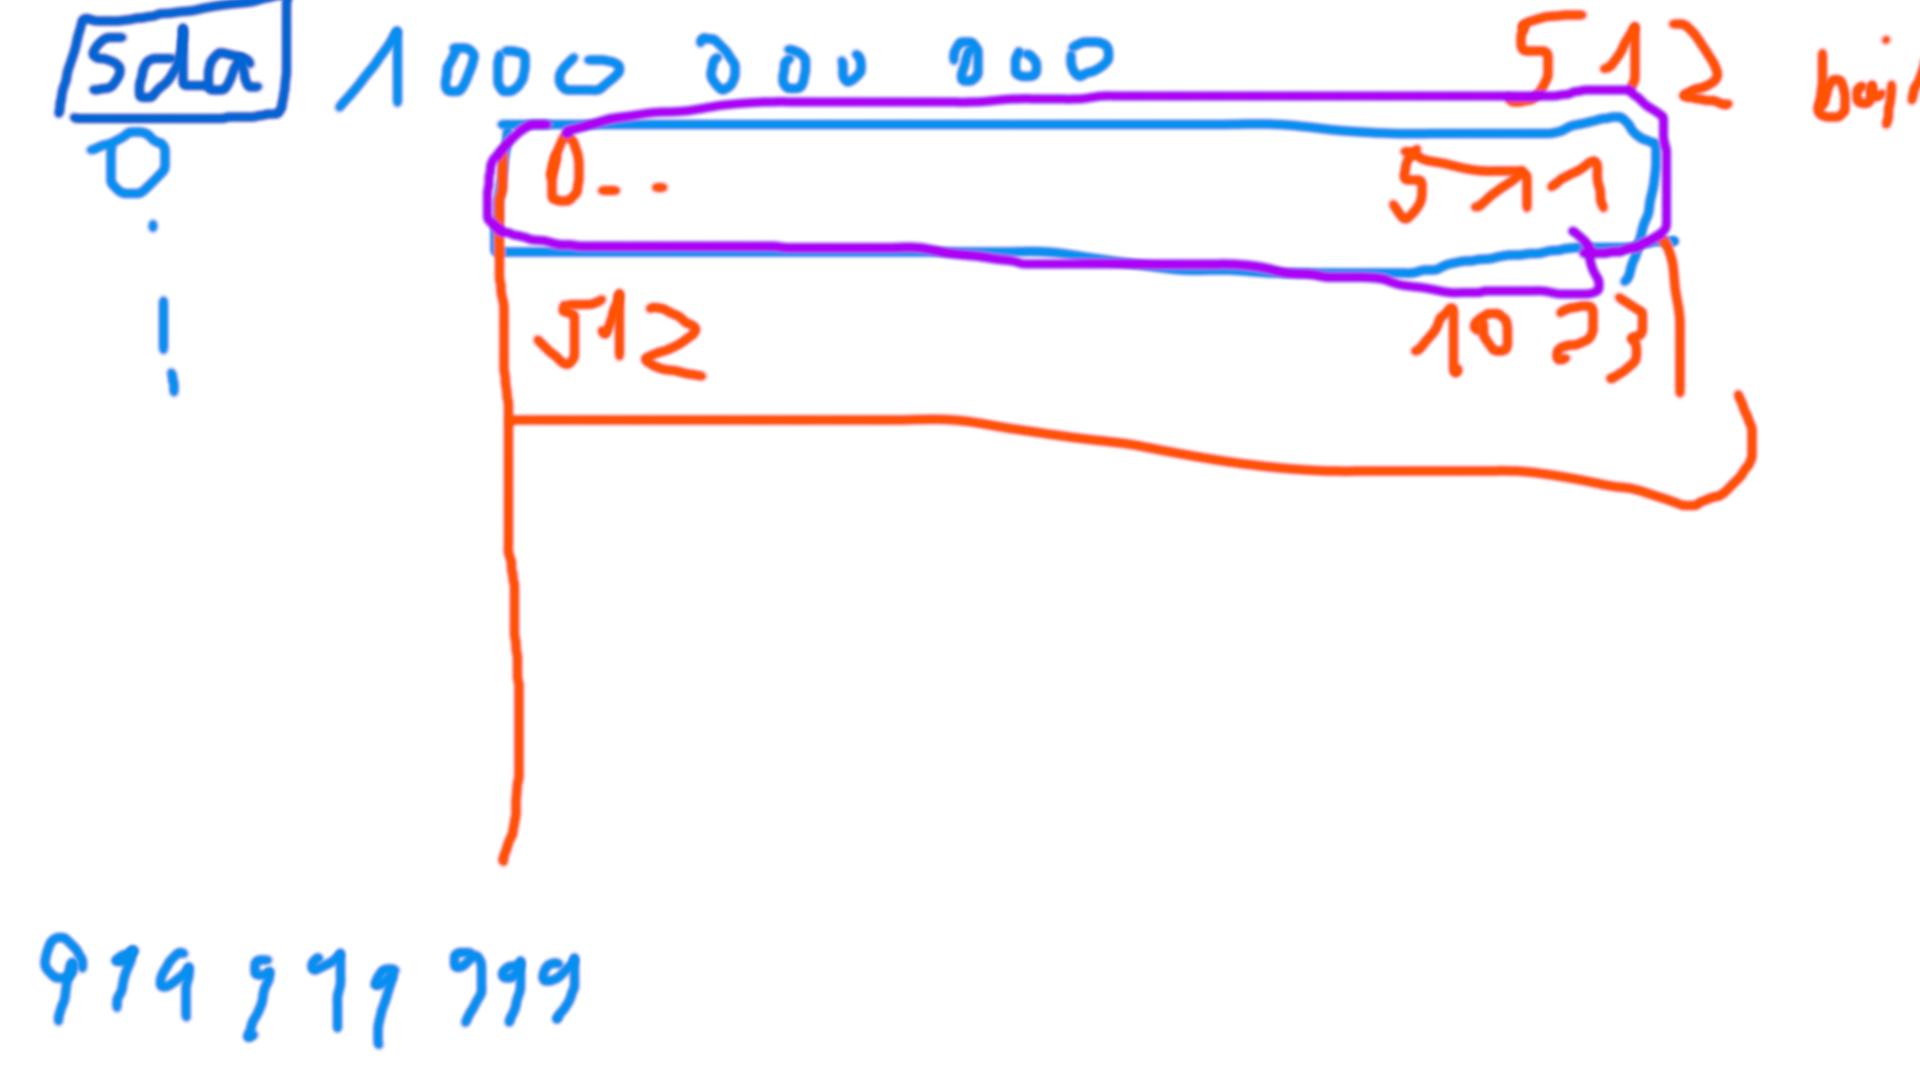 sda 1000 000 000 512
0 0 - - 511
512 1023
999 999 999